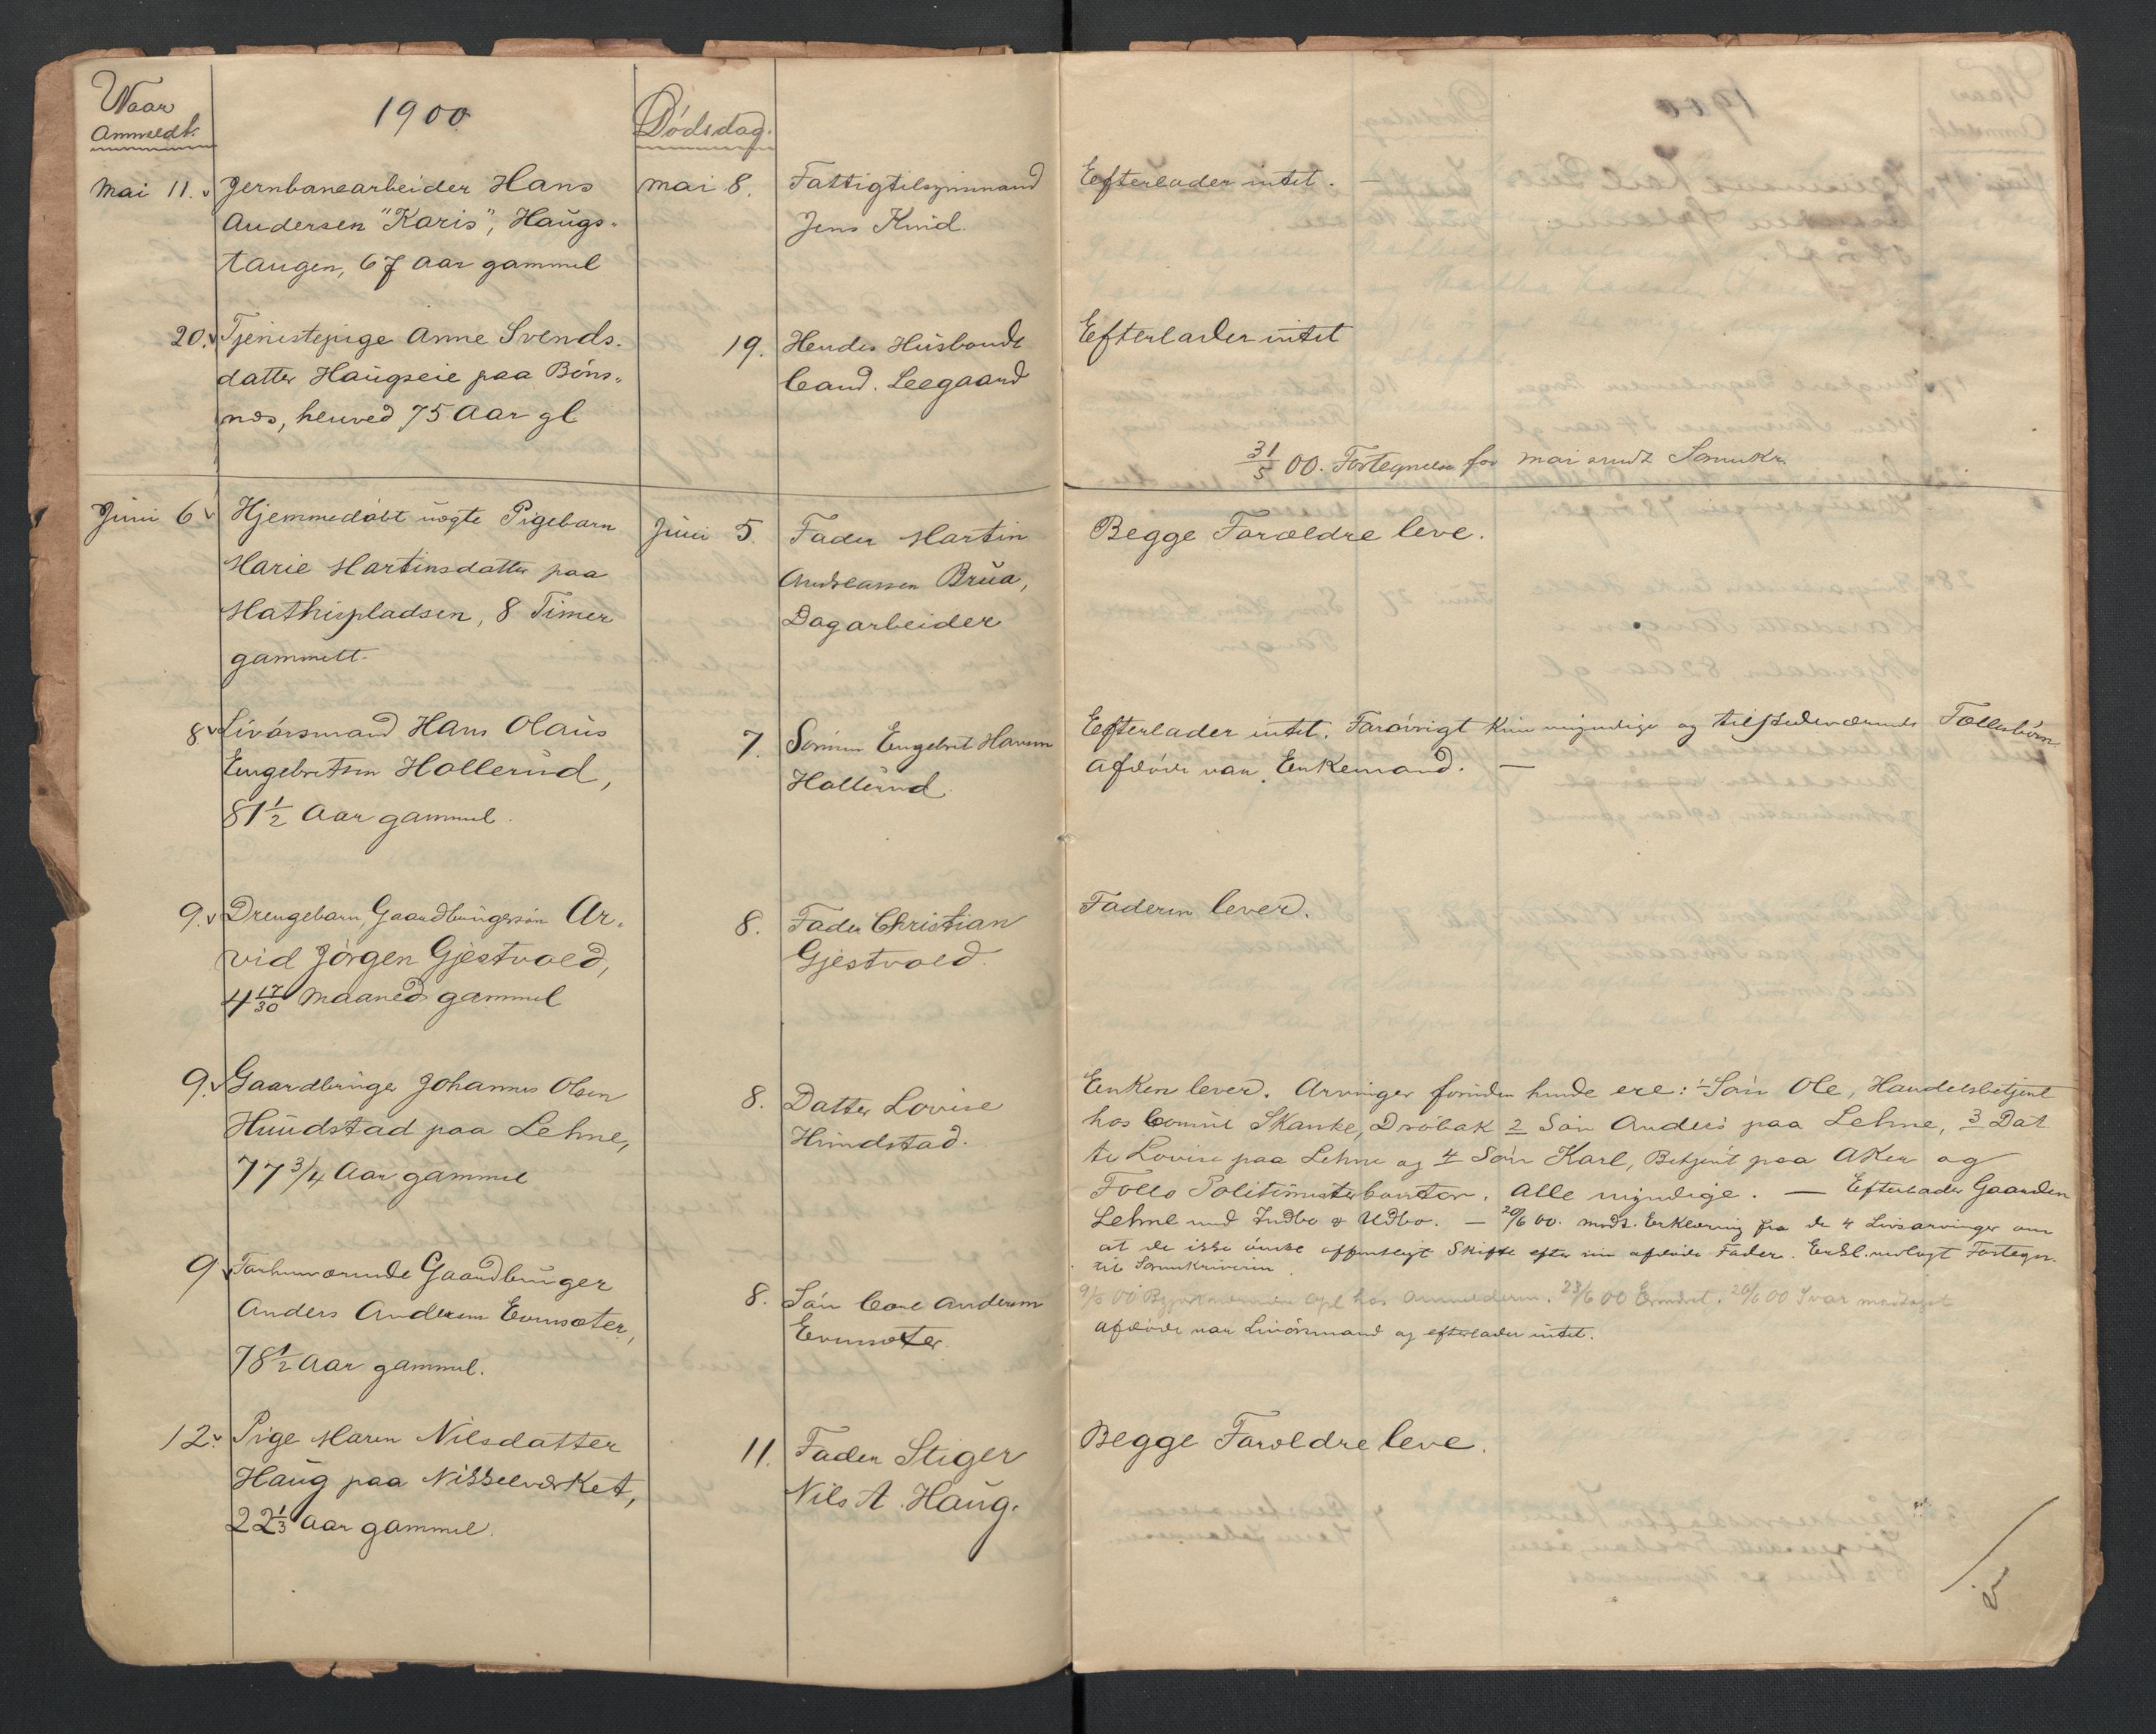 Naar
Anmeldt.
1900
Dödsdag.
Mai 11.
Jernbanearbeider Hans
Andersen "Karis", Haugs-
tangen, 67 Aar gammel
Mai 8.
Fattigtilsynsmand
Jens Kind.
Efterlader intet. —
20.
Tjenestepige Anne Svends-
datter Haugseie paa Böns-
næs, henved 75 Aar gl
19.
Hendes Husbonde
Cand. Leegaard
Efterlader intet
31/5 00. Fortegnelse for Mai sendt Sorenskr.
Juni 6
Hjemmedöbt uægte Pigebarn
Marie Martinsdatter paa
Mathispladsen, 8 Timer
gammelt.
Juni 5.
Fader Martin
Andreassen Brua,
Dagarbeider
Begge Forældre leve.
8
Livörsmand Hans Olaus
Engebretsen Hollerud,
81 1/2 Aar gammel.
7.
Sönnen Engebret Hansen
Hollerud.
Efterlader intet. Forövrigt kun myndige og tilstedeværende Fællesbörn
Afdöde var Enkemand. —
9.
Drengebarn, Gaardbrugersön Ar-
vid Jörgen Gjestvold,
4 17/30 Maaned gammel
8.
Fader Christian
Gjestvold.
Faderen lever.
9.
Gaardbruger Johannes Olsen
Hundstad paa Lehne,
77 3/4 Aar gammel
8.
Datter Lovise
Hundstad.
Enken lever. Arvinger foruden hende ere: 1 Sön Ole, Handelsbetjent
hos Skanke, Dröbak 2 Sön Anders paa Lehne, 3 Dat
ter Lovise paa Lehne og 4 Sön Karl, Betjent paa Aker og
Follo Politimesterkontor. Alle myndige. — Efterlader Gaarden
Lehne med Indbo & Udbo. — 20/6 00. modt. Erklæring fra de 4 Livsarvinger om
at de ikke önske offentligt Skifte efter sin afdöde Fader. Erkl. vedlagt Fortegn.
til Sorenskriveren
9
Forhenværende Gaardbruger
Anders Andersen Evensæter,
78 1/2 Aar gammel.
8.
Sön Carl Andersen
Evensæter.
9/6 00 hos Anmelderen. 23/6 00 Erindret. 26/6 00 Svar modtaget
Afdöde var Livörsmand og efterlader intet.
12.
Pige Maren Nilsdatter
Haug paa Nikkelværket,
22 1/3 Aar gammel.
11.
Fader Stiger
Nils A. Haug.
Begge Forældre leve.